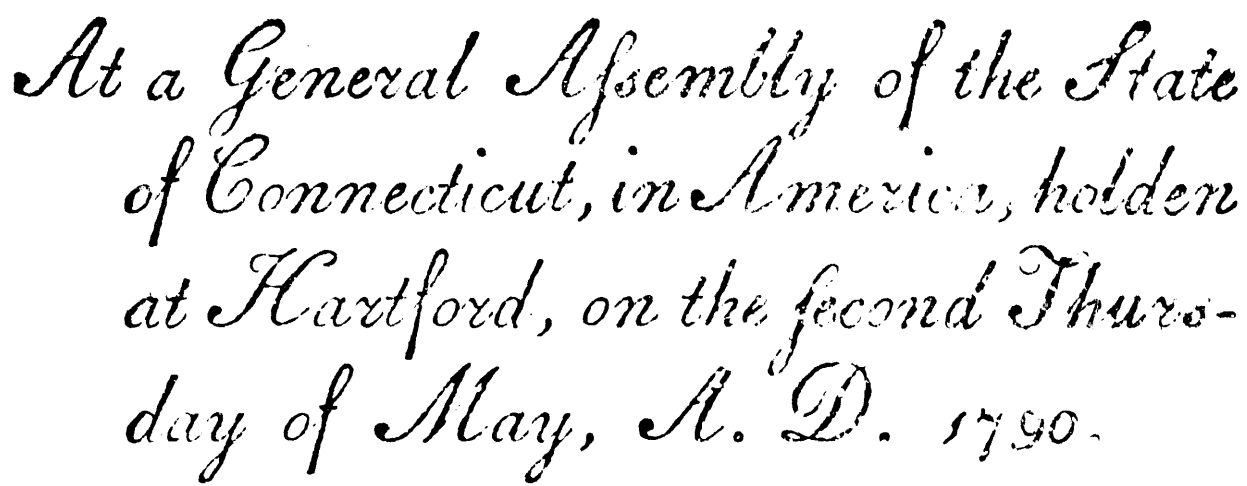 At a General Aſsembly of the State
of Connecticut, in America, holden
at Hartford, on the ſecond Thurs-
day of May, A. D. 1790.